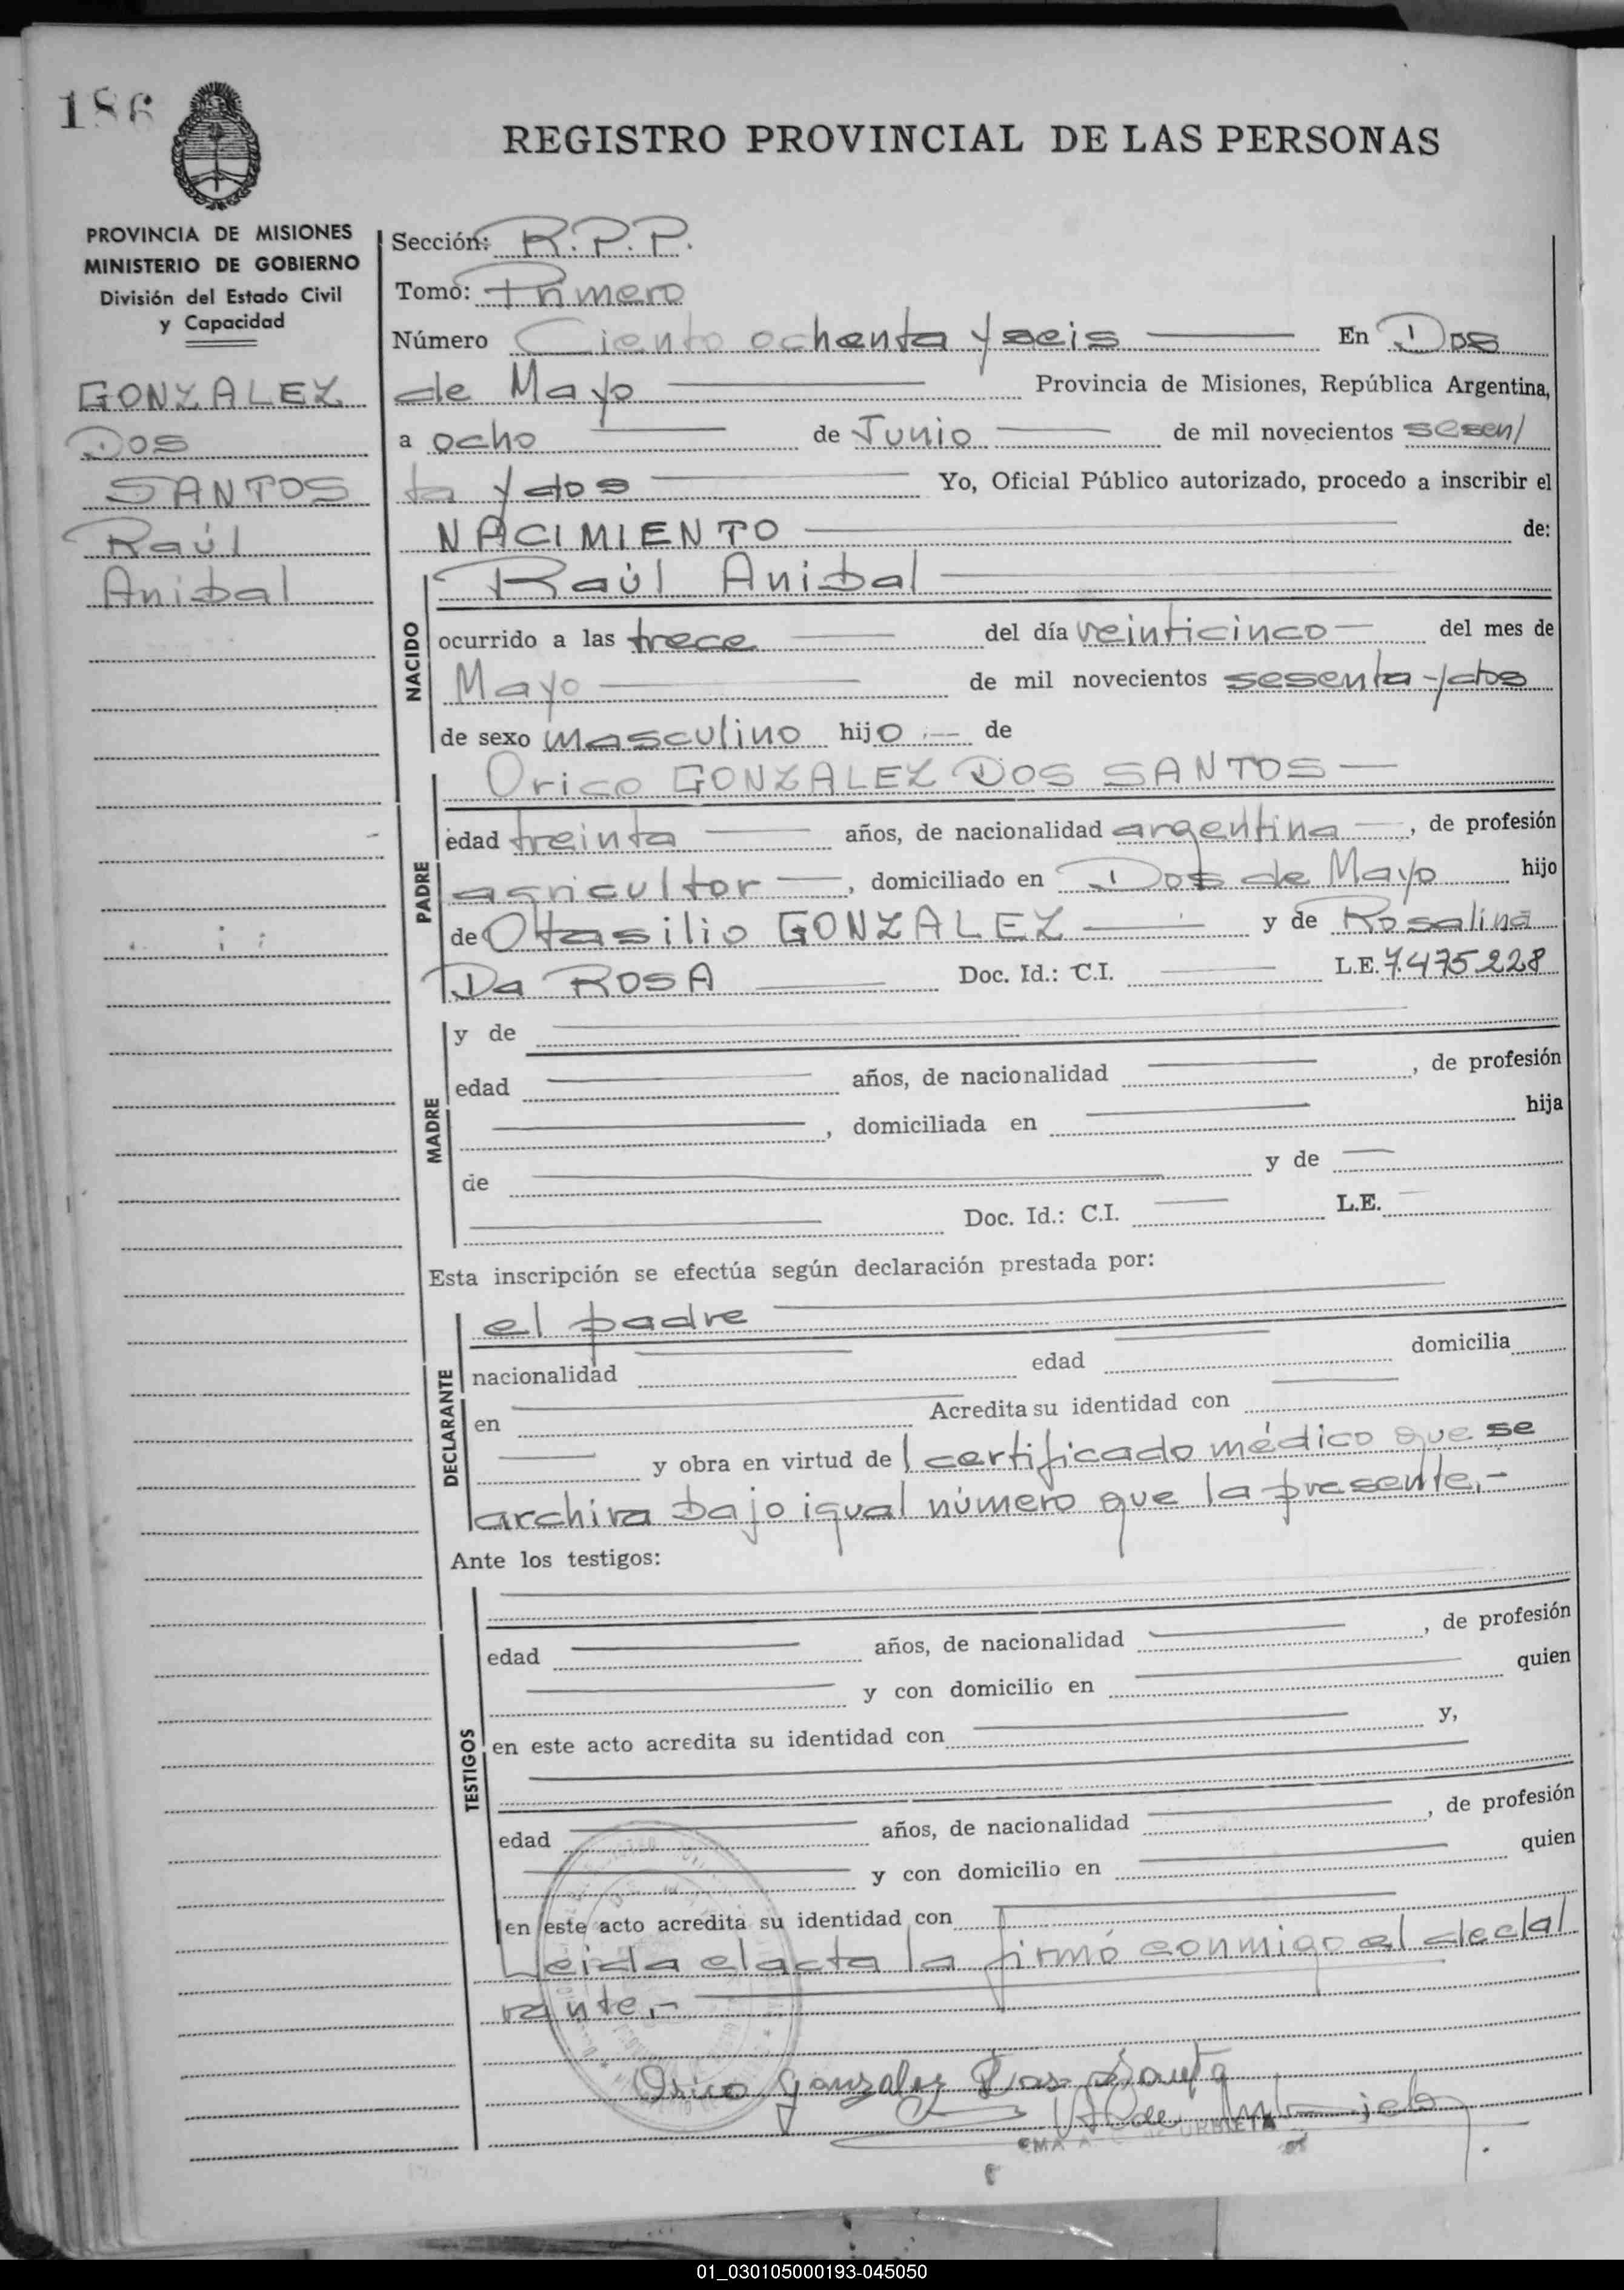 186
REGISTRO PROVINCIAL DE LAS PERSONAS
PROVINCIA DE MISIONES
MINISTERIO DE GOBIERNO
División del Estado Civil
y Capacidad
GONZALEZ
DOS
SANTOS
Raúl
Anibal
Sección: R.P.P.
Tomo: Primero
Número Ciento ochenta y seis En Dos
de Mayo Provincia de Misiones, República Argentina,
a ocho de Junio de mil novecientos sesen/
ta y dos Yo, Oficial Público autorizado, procedo a inscribir el
NACIMIENTO de:
NACIDO
Raúl Anibal
ocurrido a las trece del día veinticinco del mes de
Mayo de mil novecientos sesenta y dos
de sexo masculino hijo de
PADRE
Orico GONZALEZ DOS SANTOS
edad treinta años, de nacionalidad argentina, de profesión
agricultor, domiciliado en Dos de Mayo hijo
de Otasilio GONZALEZ y de Rosalina
Da ROSA Doc. Id.: C.I. L.E. 7.475.228
MADRE
y de
edad años, de nacionalidad , de profesión
, domiciliada en hija
de y de
Doc. Id.: C.I. L.E.
Esta inscripción se efectúa según declaración prestada por:
DECLARANTE
el padre
nacionalidad edad domicilia
en Acredita su identidad con
y obra en virtud de 1 certificado médico que se
archiva bajo igual número que la presente.-
Ante los testigos:
TESTIGOS
edad años, de nacionalidad , de profesión
y con domicilio en quien
en este acto acredita su identidad con y,
edad años, de nacionalidad , de profesión
y con domicilio en quien
en este acto acredita su identidad con
Leida el acta la firmó conmigo el decla/
rante.-
Orico Gonzalez Dos Santo
01_030105000193-045050